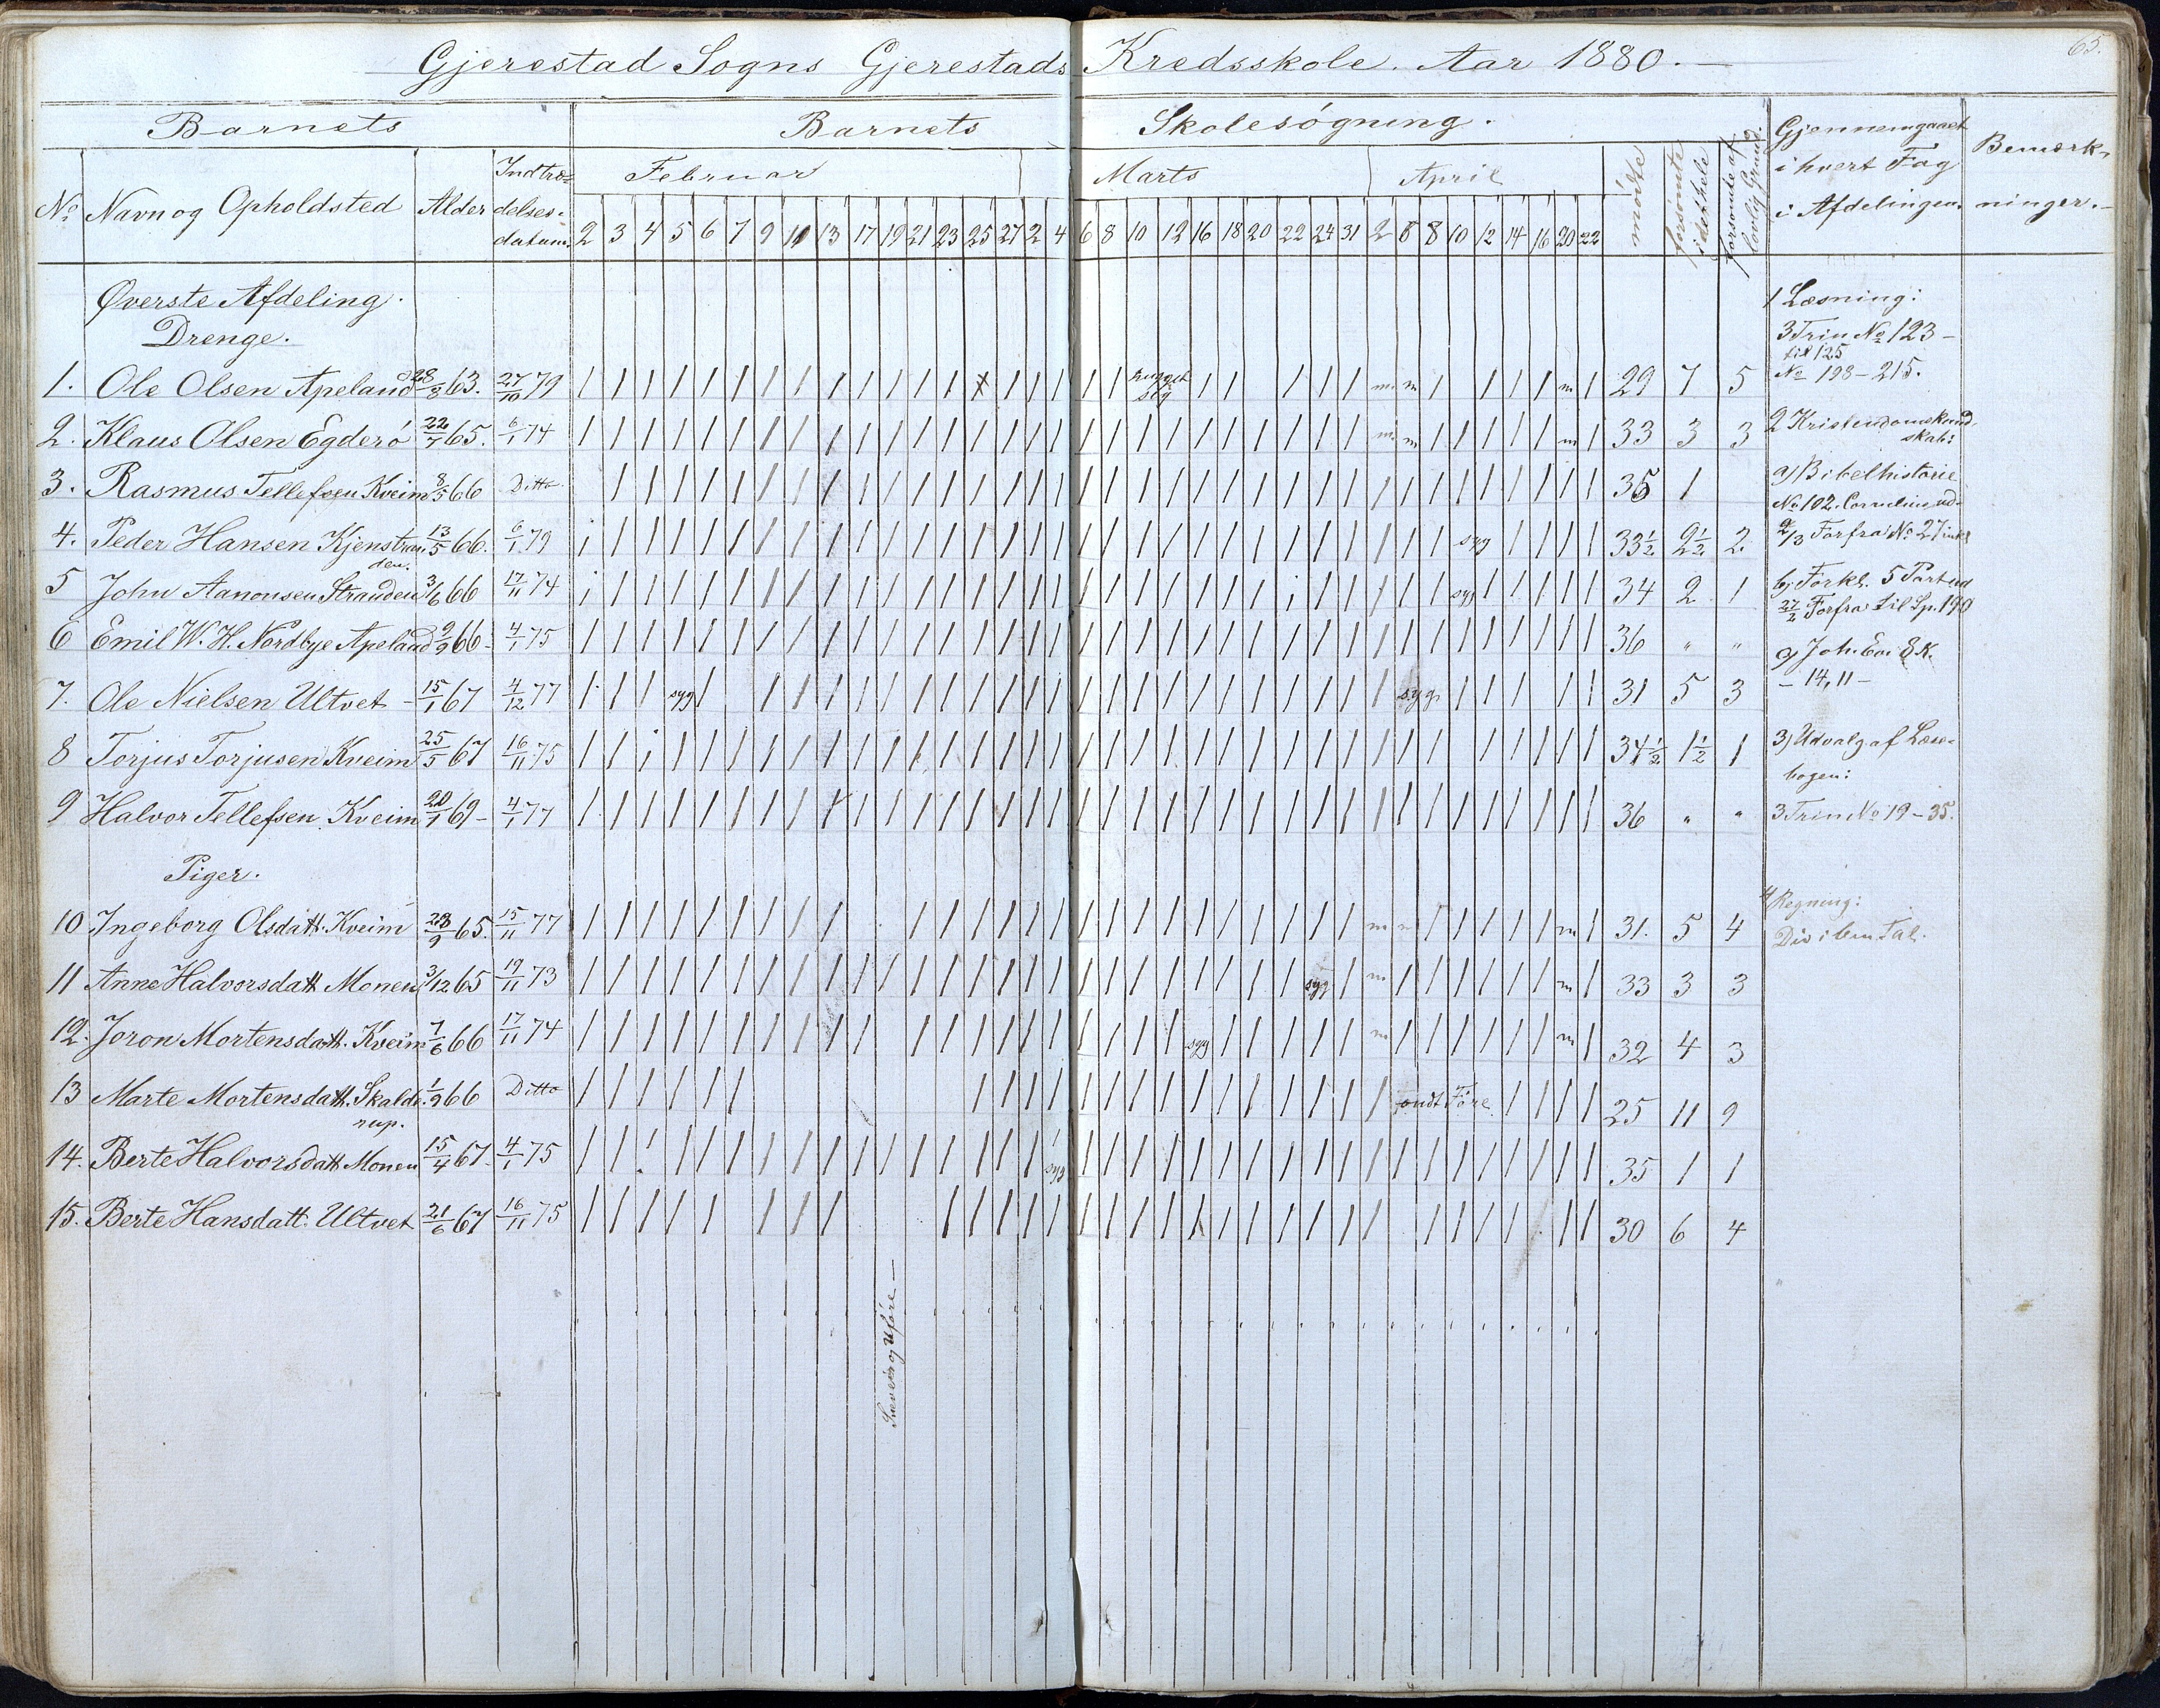 65.
Gjerestad Sogns Gjerestads Kredsskole. Aar 1880.
Barnets Barnets Skolesøgning. Gjennemgaaet i hvert Fag i Afdelingen. Bemærkninger.
No Navn og Opholdsted Alder Indtrædelsesdatum. Februar Marts April mødte forsømte i det hele forsømte af lovlig Grund.
2 3 4 5 6 7 9 10 13 17 19 21 23 25 27 2 4 6 8 10 12 16 18 20 22 24 31 2 8 8 10 12 14 16 20 22
Øverste Afdeling.
Drenge.
1. Ole Olsen Apeland 28/8 63. 27/10 79 / / / / / / / / / / / / / x / / / / / hugget sig / / / / / m m / / / / m / 29 7 5
2. Klaus Olsen Egderø 22/7 65. 6/1 74 m m m / 33 3 3
3. Rasmus Tellefsen Kveim 8/5 66 Ditto 35 1
4. Peder Hansen Kjenstranden. 13/5 66. 6/1 79 syg 33½ 2½ 2.
5 John Aanonsen Stranden 3/6 66 17/11 74 syg 34 2 1
6 Emil W. H. Nordbye Apeland 9/9 66. 4/1 75 36 " "
7. Ole Nielsen Ultvet 15/1 67 4/12 77 syg syg. 31 5 3
8 Torjus Torjusen Kveim 25/5 67 16/11 75 34½ 1½ 1
9 Halvor Tellefsen Kveim 20/1 69 4/1 77 36 " "
Piger.
10 Ingeborg Olsdatt. Kveim 28/9 65. 15/11 77 m m m 31. 5 4
11 Anne Halvorsdatt Monen 3/12 65 19/11 73 syg m m 33 3 3
12. Joron Mortensdatt. Kveim 7/6 66 17/11 74 syg m m 32 4 3
13 Marte Mortensdatt. Skalderup. 1/9 66 Ditto ondt Føre 25 11 9
14. Berte Halvorsdatt Monen 15/4 67. 4/1 75 syg 35 1 1
15. Berte Hansdatt. Ultvet 21/6 67 16/11 75 30 6 4
Sneveir og Uføre
1 Læsning:
3 Trin No 123 –
til 125
No 198 – 215.
2 Kristendomskundskab:
a) Bibelhistorie
No 102. Cornelius ud
2/3 Forfra No 27 inkl
b) Forkl. 5 Part ud
27/2 Forfra til Sp. 190
c) Joh. Ev. 8 K.
– 14, 11 –
3) Udvalg af Læsebogen:
3 Trin No 19 – 35.
4 Regning: